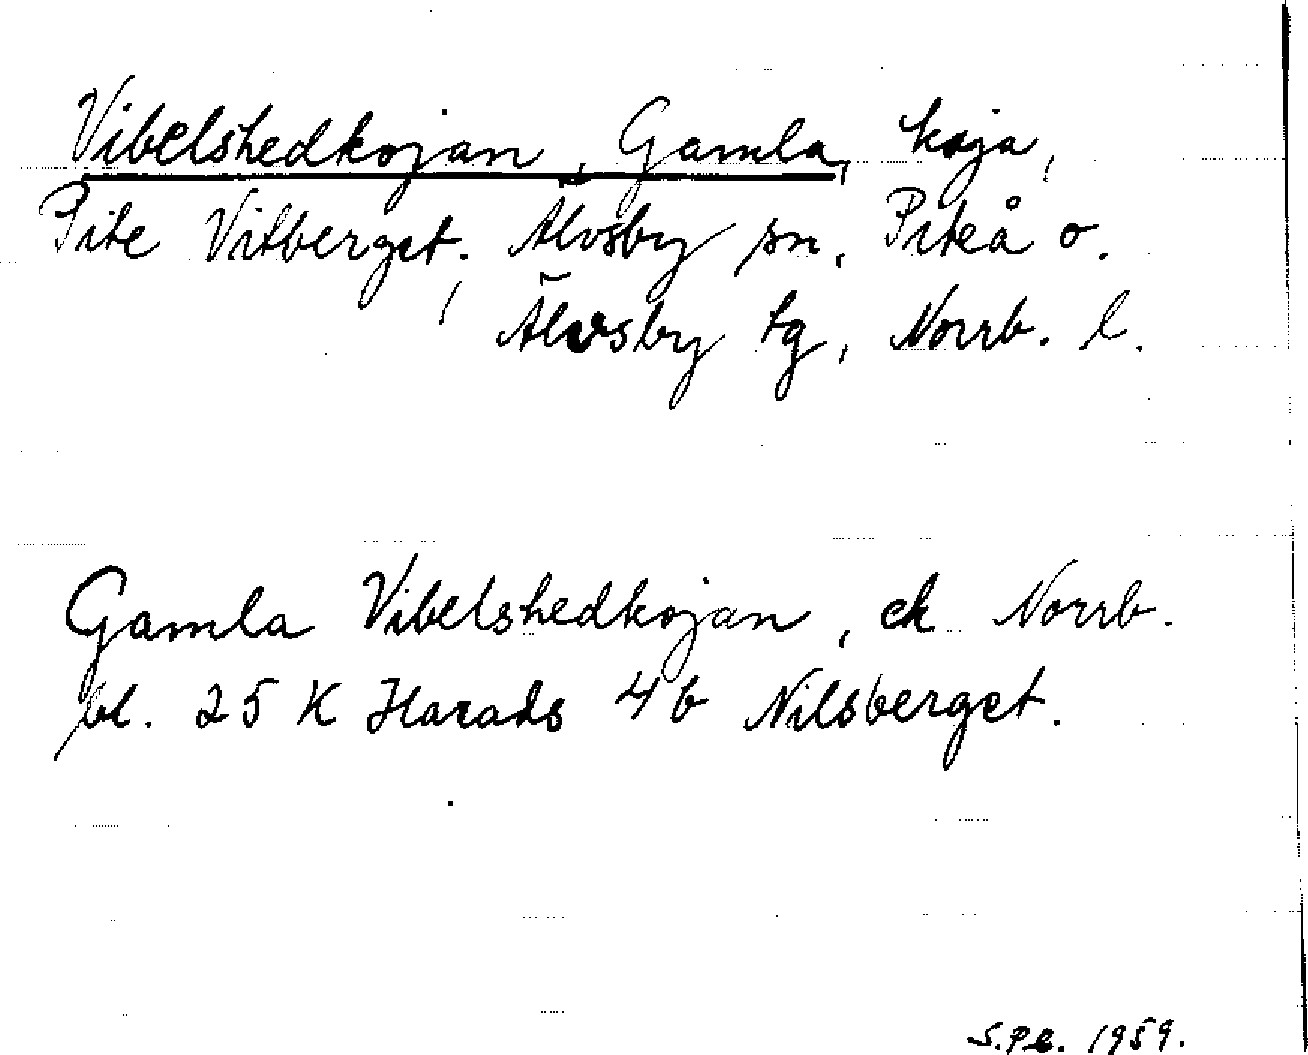 Vibelshedkojan, Gamla, koja,
Pite Vitberget. Älvsby sn, Piteå o.
Älvsby tg, Norrb. l.
Gamla Vibelshedkojan, ek Norrb.
bl. 25 K Harads 4b Nilsberget.
S.P.B. 1959.